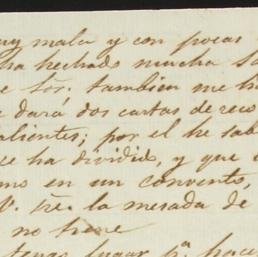 muy mala y con pocas
ha hechado mucha
Sor. tambien me
dará dos cartas de reco
alientes; por el he sab
ce ha dividido, y que
mo en un convento,
V. tre. la mesada de
no tiene
tengo lugar pa. hace